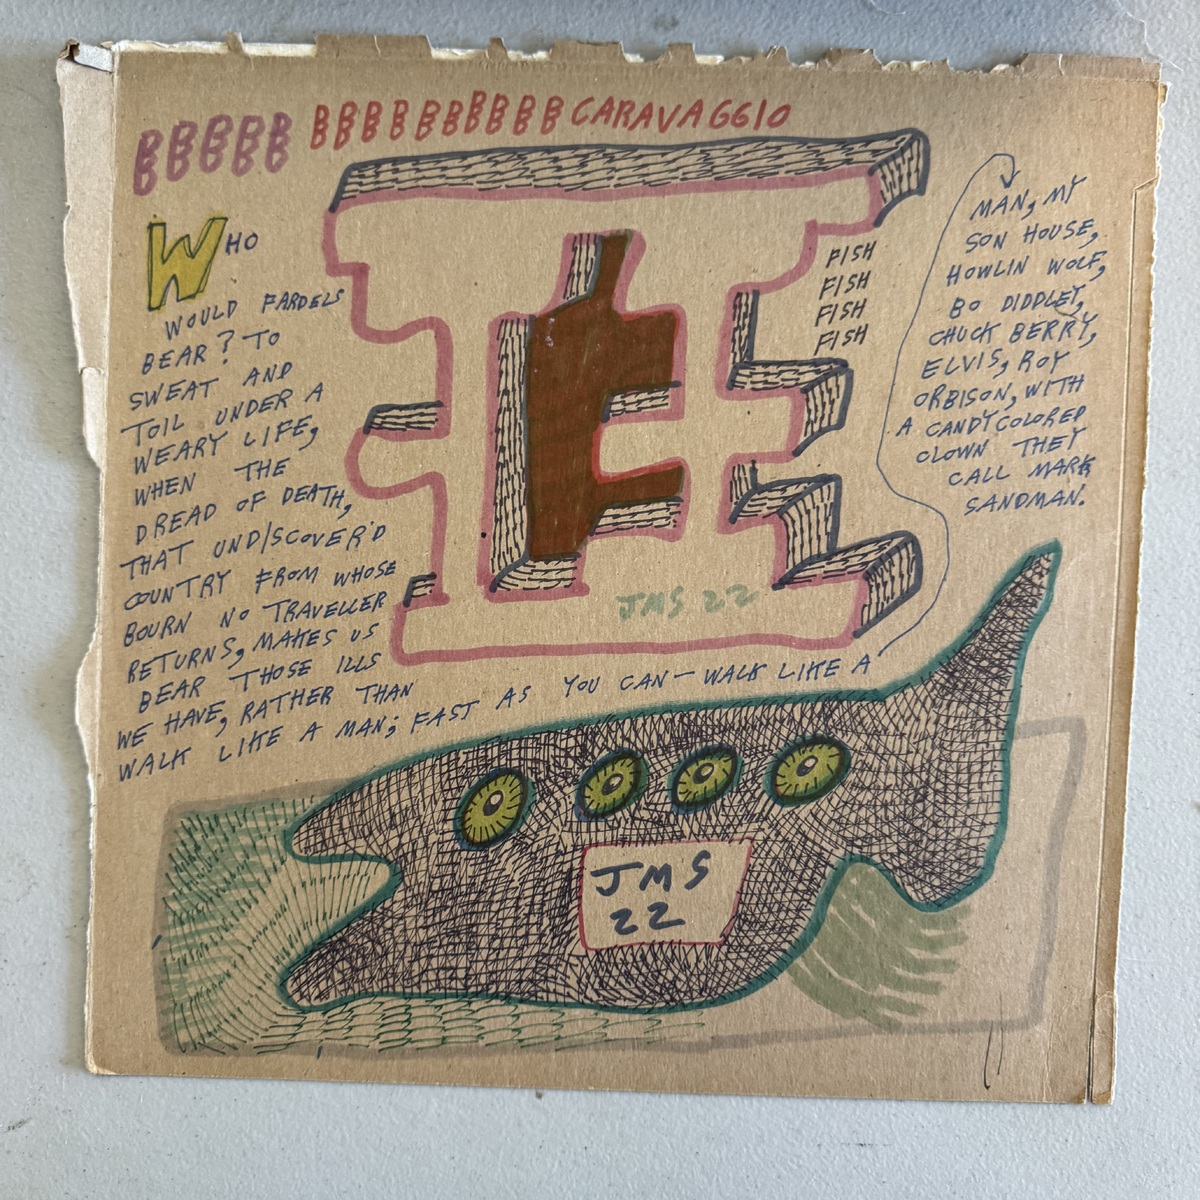 BBBBB BBBBBBBBBB CARAVAGGIO
WHO
WOULD FARDELS
BEAR? TO
SWEAT AND
TOIL UNDER A
WEARY LIFE,
WHEN THE
DREAD OF DEATH,
THAT UNDISCOVER'D
COUNTRY FROM WHOSE
BOURN NO TRAVELLER
RETURNS, MAKES US
BEAR THOSE ILLS
WE HAVE, RATHER THAN
WALK LIKE A MAN; FAST AS YOU CAN — WALK LIKE A
MAN, MY
SON HOUSE,
HOWLIN WOLF,
BO DIDDLEY,
CHUCK BERRY,
ELVIS, ROY
ORBISON, WITH
A CANDYCOLORED
CLOWN THEY
CALL MARK
SANDMAN.
FISH
FISH
FISH
FISH
JMS 22
JMS
22